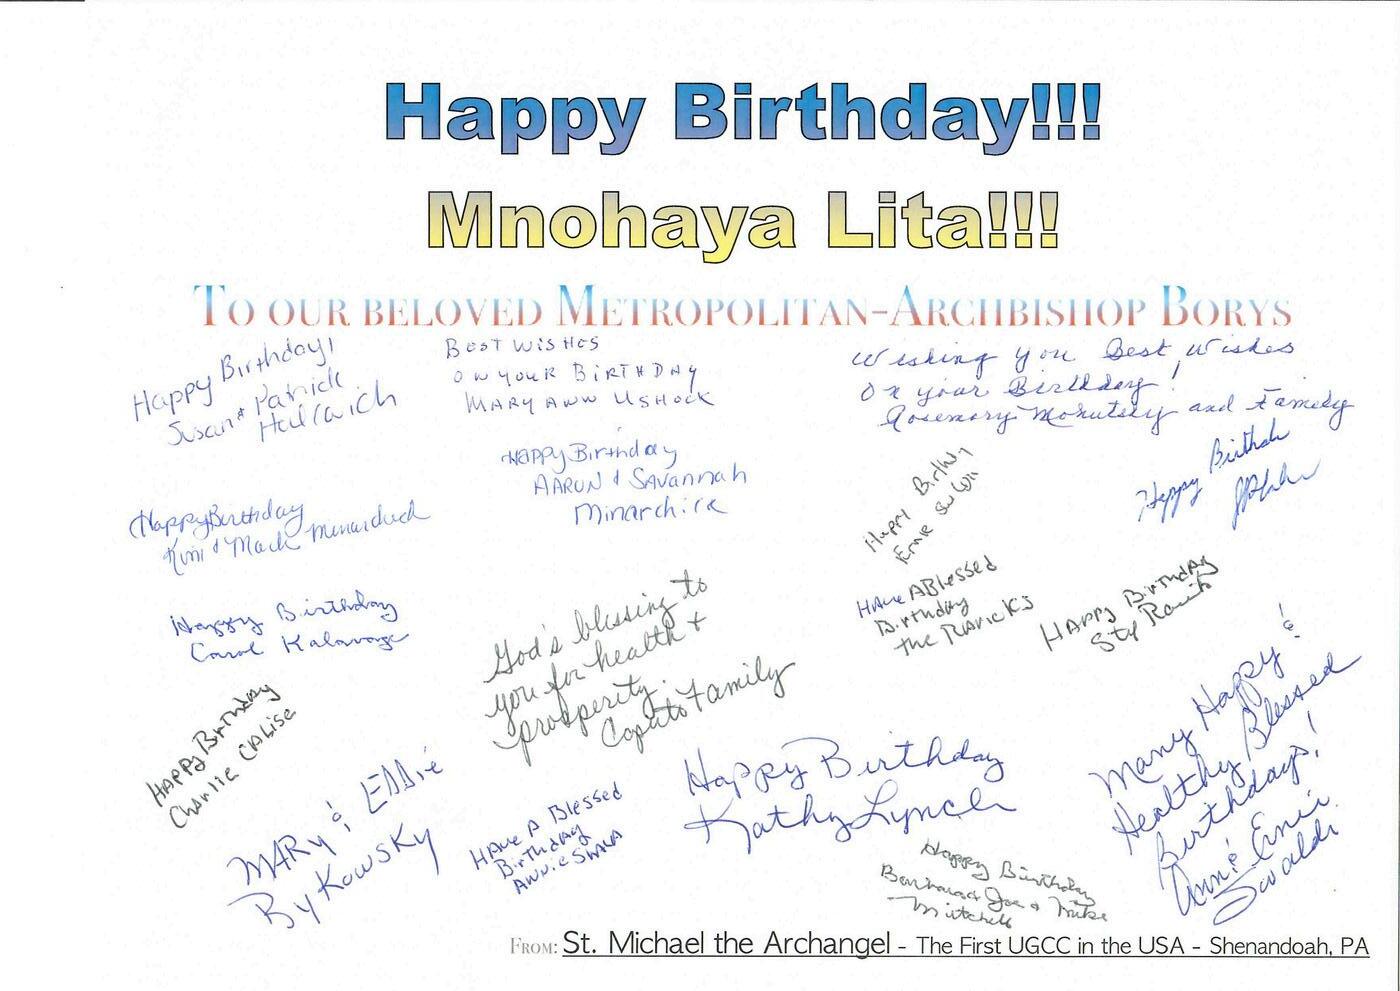 Happy Birthday!!!
Mnohaya Lita!!!
To our beloved Metropolitan-Archbishop Borys
Happy Birthday!
Susan & Patrick
Best Wishes
on your Birthday
Mary Ann Ushock
Wishing you Best Wishes
On your Birthday!
Rosemary and Family
Happy Birthday
Aaron & Savannah
Happy Birthday
Happy Birthday
Happy Birthday
Kim & Mark
Have A Blessed
Birthday
the Ravicks
Happy Birthday
Happy Birthday
Carol
God's blessing to
you for health +
prosperity.
Caputo Family
Happy Birthday
Charlie Calise
Mary & Eddie
Bykowsky
Have A Blessed
Birthday
Annie
Happy Birthday
Kathy Lynch
Many Happy &
Healthy Blessed
Birthdays!
Ann & Ernie
Happy Birthday
Barbara & Joe & Mike
Mitchell
From: St. Michael the Archangel - The First UGCC in the USA - Shenandoah, PA